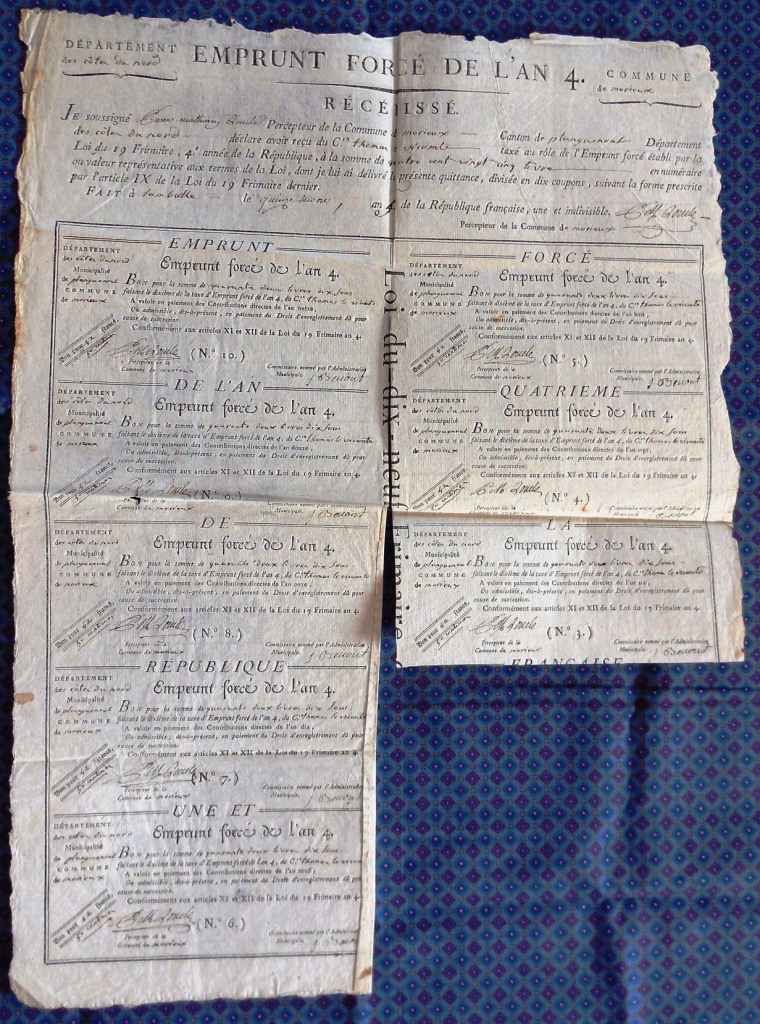 DÉPARTEMENT
des côtes du nord
EMPRUNT FORCÉ DE L'AN 4.
COMMUNE
de morieux
RÉCÉPISSÉ.
JE soussigné Percepteur de la Commune d morieux Canton de planguenoual Département
des côtes du nord déclare avoir reçu du C.en thomas le vicomte taxé au rôle de l'Emprunt forcé établi par la
Loi du 19 Frimaire, 4.e année de la République, à la somme de quatre cent vingt cinq livres en numéraire
ou valeur representative aux termes de la Loi, dont je lui ai délivré la présente quittance, divisée en dix coupons, suivant la forme prescrite
par l'article IX de la Loi du 19 Frimaire dernier.
FAIT à lamballe le quinze an 4 de la République française, une et indivisible.
Percepteur de la Commune de morieux
Loi du dix-neuf Frimaire
EMPRUNT
DÉPARTEMENT
des côtes du nord
Municipalité
de planguenoual
COMMUNE
de morieux
Emprunt forcé de l'an 4.
BON pour la somme de quarante deux livres dix sous
faisant le dixième de la taxe d'Emprunt forcé de l'an 4, du C.en thomas le vicomte
A valoir en paiement des Contributions directes de l'an treize,
Ou admissible, dès-à-présent, en paiement du Droit d'enregistrement dû pour
cause de succession.
Conformément aux articles XI et XII de la Loi du 19 Frimaire an 4.
Bon pour 42 francs,
(N.° 10.)
Percepteur de la
Commune de morieux
Commissaire nommé par l'Administration
Municipale.
DE L'AN
DÉPARTEMENT
des côtes du nord
Municipalité
de planguenoual
COMMUNE
de morieux
Emprunt forcé de l'an 4.
BON pour la somme de quarante deux livres dix sous
faisant le dixième de la taxe d'Emprunt forcé de l'an 4, du C.en thomas le vicomte
A valoir en paiement des Contributions directes de l'an
Ou admissible, dès-à-présent, en paiement du Droit d'enregistrement dû pour
cause de succession.
Conformément aux articles XI et XII de la Loi du 19 Frimaire an 4.
(N.° 9.)
DE
DÉPARTEMENT
des côtes du nord
Municipalité
de planguenoual
COMMUNE
de morieux
Emprunt forcé de l'an 4.
BON pour la somme de quarante deux livres dix sous
faisant le dixième de la taxe d'Emprunt forcé de l'an 4, du C.en thomas le vicomte
A valoir en paiement des Contributions directes de l'an onze,
Ou admissible, dès-à-présent, en paiement du Droit d'enregistrement dû pour
cause de succession.
Conformément aux articles XI et XII de la Loi du 19 Frimaire an 4.
Bon pour 42 francs,
(N.° 8.)
Percepteur de la
Commune de morieux
Commissaire nommé par l'Administration
Municipale.
RÉPUBLIQUE
DÉPARTEMENT
des côtes du nord
Municipalité
de planguenoual
COMMUNE
de morieux
Emprunt forcé de l'an 4.
BON pour la somme de quarante deux livres dix sous
faisant le dixième de la taxe d'Emprunt forcé de l'an 4, du C.en thomas le vicomte
A valoir en paiement des Contributions directes de l'an dix,
Ou admissible, dès-à-présent, en paiement du Droit d'enregistrement dû pour
cause de succession.
Conformément aux articles XI et XII de la Loi du 19 Frimaire an 4.
Bon pour 42 francs,
(N.° 7.)
Percepteur de la
Commune de morieux
Commissaire nommé par l'Administration
Municipale.
UNE ET
DÉPARTEMENT
des côtes du nord
Municipalité
de planguenoual
COMMUNE
de morieux
Emprunt forcé de l'an 4.
BON pour la somme de quarante deux livres dix sous
faisant le dixième de la taxe d'Emprunt forcé de l'an 4, du C.en thomas le vicomte
A valoir en paiement des Contributions directes de l'an neuf,
Ou admissible, dès-à-présent, en paiement du Droit d'enregistrement dû pour
cause de succession.
Conformément aux articles XI et XII de la Loi du 19 Frimaire an 4.
Bon pour 42 francs,
(N.° 6.)
Percepteur de la
Commune de morieux
Commissaire nommé par l'Administration
Municipale.
FORCÉ
DÉPARTEMENT
des côtes du nord
Municipalité
de planguenoual
COMMUNE
de morieux
Emprunt forcé de l'an 4.
BON pour la somme de quarante deux livres dix sous
faisant le dixième de la taxe d'Emprunt forcé de l'an 4, du C.en thomas le vicomte
A valoir en paiement des Contributions directes de l'an huit,
Ou admissible, dès-à-présent, en paiement du Droit d'enregistrement dû pour
cause de succession.
Conformément aux articles XI et XII de la Loi du 19 Frimaire an 4.
Bon pour 42 francs,
(N.° 5.)
Percepteur de la
Commune de morieux
Commissaire nommé par l'Administration
Municipale.
QUATRIEME
DÉPARTEMENT
des côtes du nord
Municipalité
de planguenoual
COMMUNE
de morieux
Emprunt forcé de l'an 4.
BON pour la somme de quarante deux livres dix sous
faisant le dixième de la taxe d'Emprunt forcé de l'an 4, du C.en thomas le vicomte
A valoir en paiement des Contributions directes de l'an sept,
Ou admissible, dès-à-présent, en paiement du Droit d'enregistrement dû pour
cause de succession.
Conformément aux articles XI et XII de la Loi du 19 Frimaire an 4.
Bon pour 42 francs,
(N.° 4.)
LA
DÉPARTEMENT
des côtes du nord
Municipalité
de planguenoual
COMMUNE
de morieux
Emprunt forcé de l'an 4.
BON pour la somme de quarante deux livres dix sous
faisant le dixième de la taxe d'Emprunt forcé de l'an 4, du C.en thomas le vicomte
A valoir en paiement des Contributions directes de l'an
Ou admissible, dès-à-présent, en paiement du Droit d'enregistrement dû pour
cause de succession.
Conformément aux articles XI et XII de la Loi du 19 Frimaire an 4.
Bon pour 42 francs,
(N.° 3.)
Percepteur de la
Commune de morieux
Commissaire nommé par l'Administration
Municipale.
FRANÇAISE